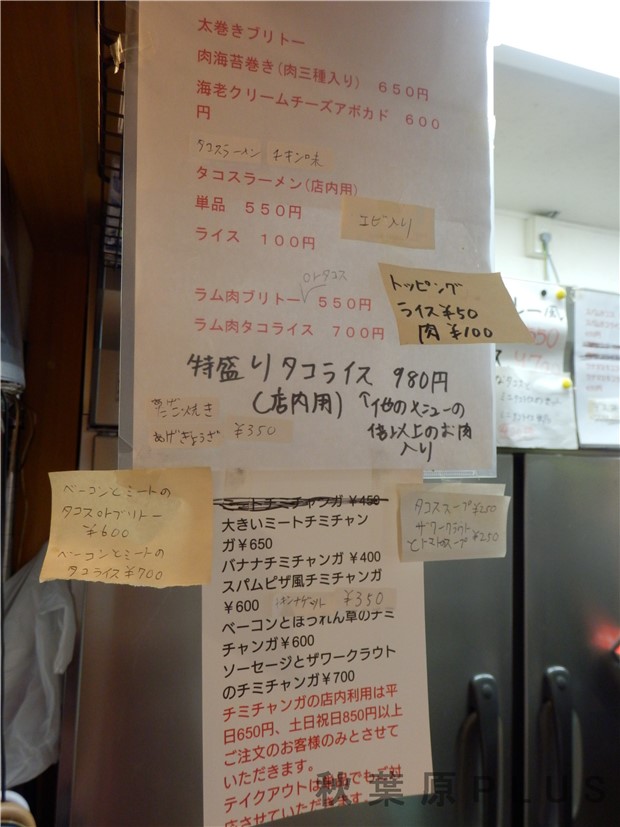 太巻きブリトー
肉海苔巻き(肉三種入り) 650円
海老クリームチーズアボカド 600
円
タコスラーメン チキン味
タコスラーメン(店内用)
単品 550円
エビ入り
ライス 100円
orタコス
ラム肉ブリトー 550円
ラム肉タコライス 700円
トッピング
ライス¥50
肉 ¥100
特盛りタコライス 980円
(店内用)
↑他のメニューの
倍以上のお肉
入り
あげぎょうざ ¥350
ベーコンとミートの
タコスorブリトー
¥600
ベーコンとミートの
タコライス¥700
タコススープ¥250
ザワークラウト
とトマトのスープ¥250
ミートチミチャンガ¥450
大きいミートチミチャン
ガ¥650
バナナチミチャンガ ¥400
スパムピザ風チミチャンガ
¥600
キンナゲット ¥350
ベーコンとほうれん草のチミ
チャンガ¥600
ソーセージとザワークラウト
のチミチャンガ¥700
チミチャンガの店内利用は平
日650円、土日祝日850円以上
ご注文のお客様のみとさせて
いただきます。
テイクアウトは単品でもご対
応させていただきます。
秋葉原PLUS